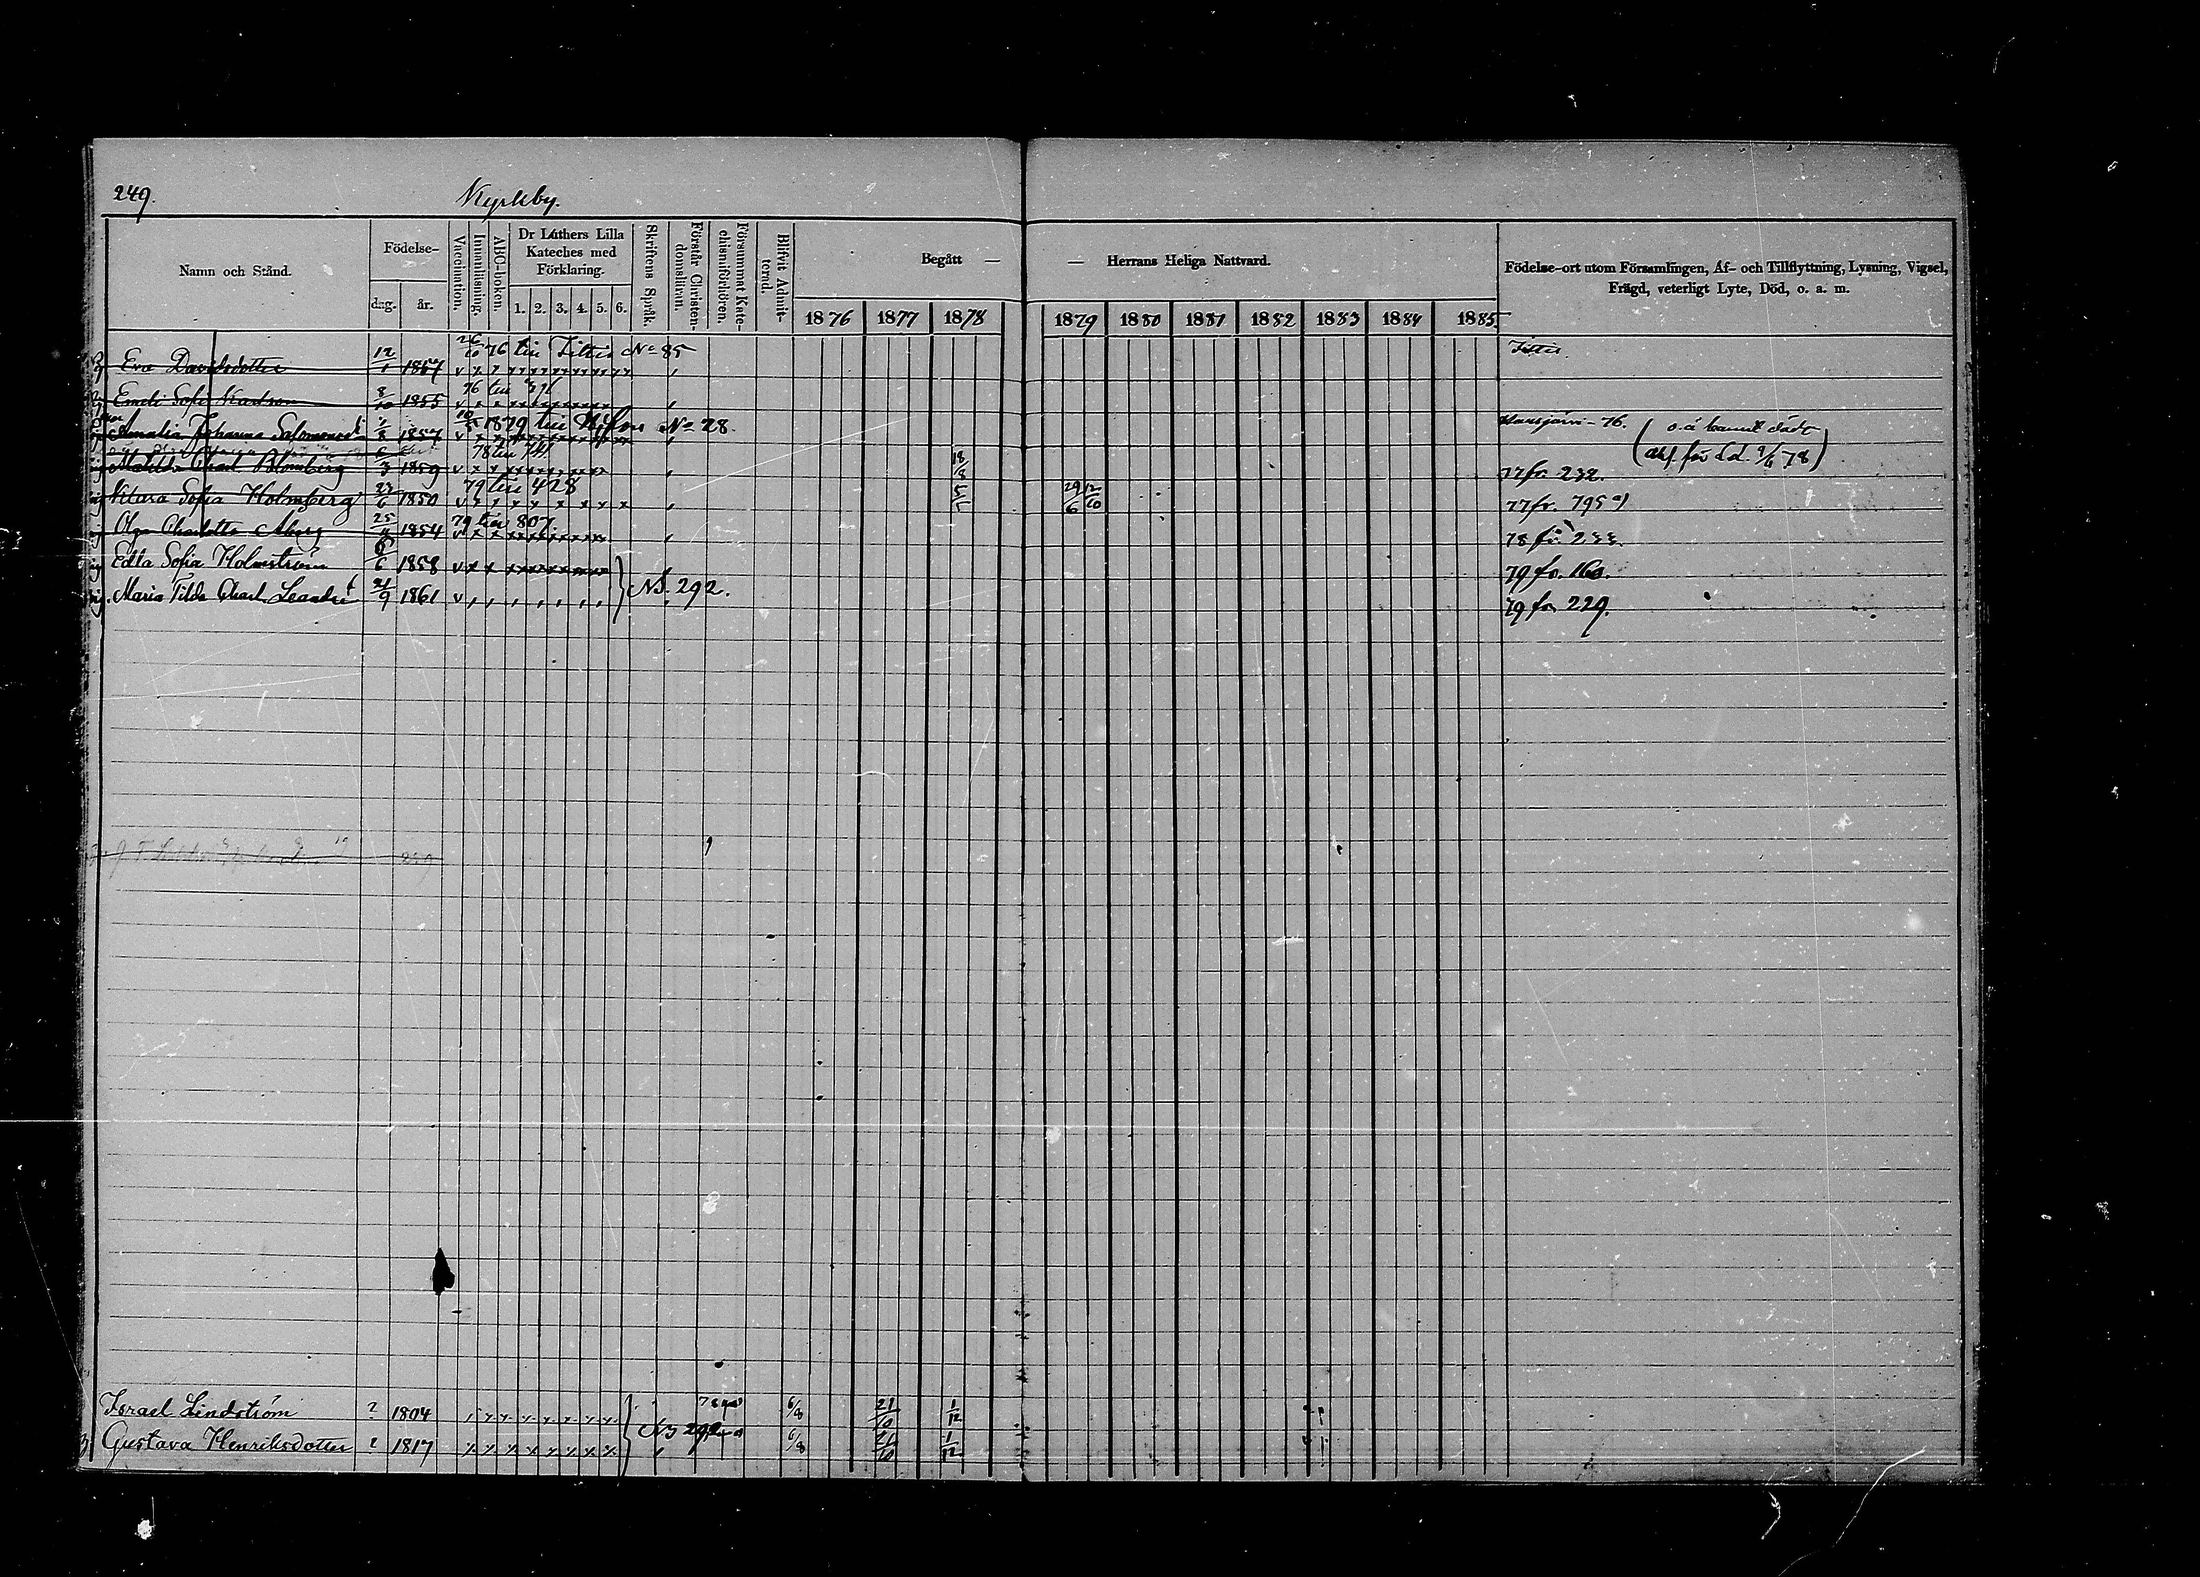 249.
Kyrkby.
Namn och Stånd.
Födelse-
dag.
år.
Vaccination.
Innanläsning.
ABC-boken.
Dr Luthers Lilla
Kateches med
Förklaring.
1. 2. 3. 4. 5. 6.
Skriftens Språk.
Förstår Christen-
domsläran.
Försummat Kate-
chismiförhören.
Blifvit Admit-
terad.
Begått —
— Herrans Heliga Nattvard.
1876 1877 1878
1879 1880 1881 1882 1883 1884 1885
Födelse-ort utom Församlingen, Af- och Tillflyttning, Lysning, Vigsel,
Frägd, veterligt Lyte, Död, o. a. m.
26/10 76 till Tittis No 85
Eva Davidsdotter 12/1 1857
76 till
8/10 1855
10/5 1879 till No 28.
Amalia Johanna 1/8 1857 76.
(akf. för
78 till 741
Matilda Charl. Blomberg 3 1859 18/8 77 fr. 232.
79 till 428
Sofia Holmberg 23/6 1850 29/6 12/10 77 fr. 795
79 till 807.
Olga Charlotta Åberg 25 1854 78 fr. 233.
Edla Sofia Holmström 6 1858 79 fr. 160.
Maria Tilda Charl. Leander 21/9 1861 N3. 292. 79 fr. 229.
Israel Lindström ? 1804 6/8 21/10 1/12
Gustava Henriksdotter ? 1817 6/8 21/10 1/12